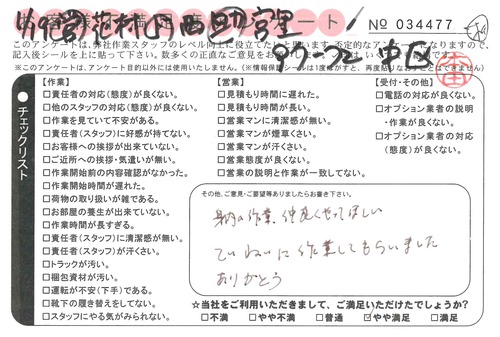 お客様アンケート
№ 034477
このアンケートは、弊社作業スタッフのレベル向上に役立てたいと思います。否定的なアンケートになりますので、
記入後シールを上に貼って下さい。数多くの正直なご意見をお
※このアンケートは、アンケート目的以外には使用いたしません。(※情報保護シールは1度
チェックリスト
【作業】
□責任者の対応(態度)が良くない。
□他のスタッフの対応(態度)が良くない。
□作業を見ていて不安がある。
□責任者(スタッフ)に好感が持てない。
□お客様への挨拶が出来ていない。
□ご近所への挨拶・気遣いが無い。
□作業開始前の内容確認がなかった。
□作業開始時間が遅れた。
□荷物の取り扱いが雑である。
□お部屋の養生が出来ていない。
□作業時間が長すぎる。
□責任者(スタッフ)に清潔感が無い。
□責任者(スタッフ)が汗くさい。
□トラックが汚い。
□梱包資材が汚い。
□運転が不安(下手)である。
□靴下の履き替えをしてない。
□スタッフにやる気がみられない。
【営業】
□見積もり時間に遅れた。
□見積もり時間が長い。
□営業マンに清潔感が無い。
□営業マンが煙草くさい。
□営業マンが汗くさい。
□営業態度が良くない。
□営業の説明と作業が一致してない。
【受付・その他】
□電話の対応が良くない。
□オプション業者の説明
・作業が良くない。
□オプション業者の対応
(態度)が良くない。
その他、ご意見・ご要望等ありましたらお書き下さい。
作業、仲良くやってほしい
ていねいに作業してもらいました
ありがとう
☆当社をご利用いただきまして、ご満足いただけたでしょうか?
□不満 □やや不満 □普通 ☑やや満足 □満足